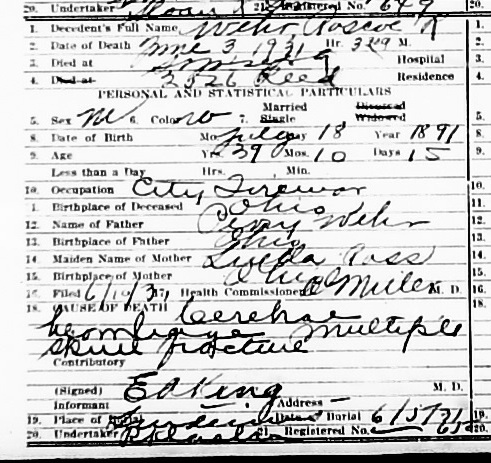 20. Undertaker 21. Registered No. 649 20.
1. Decedent's Full Name Wehr, Roscoe R 1.
2. Date of Death June 3 1931 Hr. 329 M. 2.
3. Died at Hospital 3.
4. Died at 2526 Reed Residence 4.
PERSONAL AND STATISTICAL PARTICULARS
5. Sex M 6. Color W 7. Married Single Divorced Widowed 5.
8. Date of Birth Mo. July Day 18 Year 1891 8.
9. Age Yrs. 39 Mos. 10 Days 15 9.
Less than a Day Hrs. Min.
10. Occupation City Fireman 10.
1. Birthplace of Deceased Ohio 11.
12. Name of Father Perry Wehr 12.
13. Birthplace of Father Ohio 13.
14. Maiden Name of Mother Ross 14.
15. Birthplace of Mother Ohio 15.
Filed 6/10/31 Health Commissioner Miller M. D. 16.
18. CAUSE OF DEATH Cerebral 18.
hemorhage Multiple
skull fracture
Contributory
(Signed) E A King M. D.
Informant Address
19. Place of Burial Date Burial 6/5/31 19.
20. Undertaker 21. Registered No. 20.